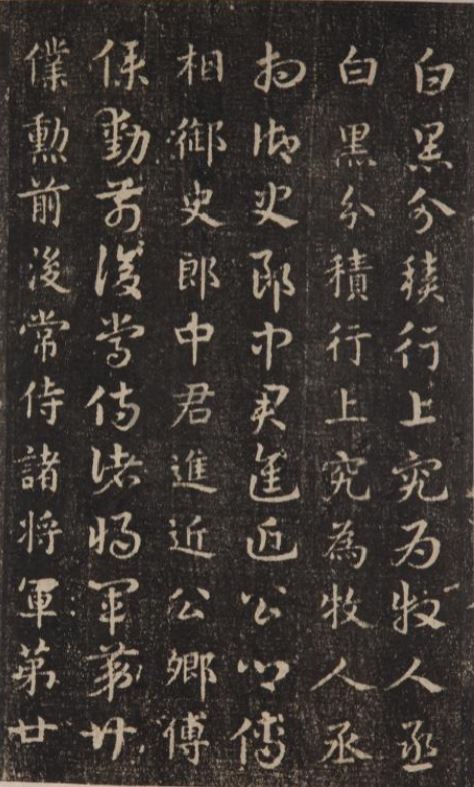 白黑分積行上究為牧人丞
白黑分積行上究為牧人丞
相御史郎中君進近公卿傅
相御史郎中君進近公卿傅
僕勳前後常侍諸将軍第廿
僕勳前後常侍諸将軍第廿